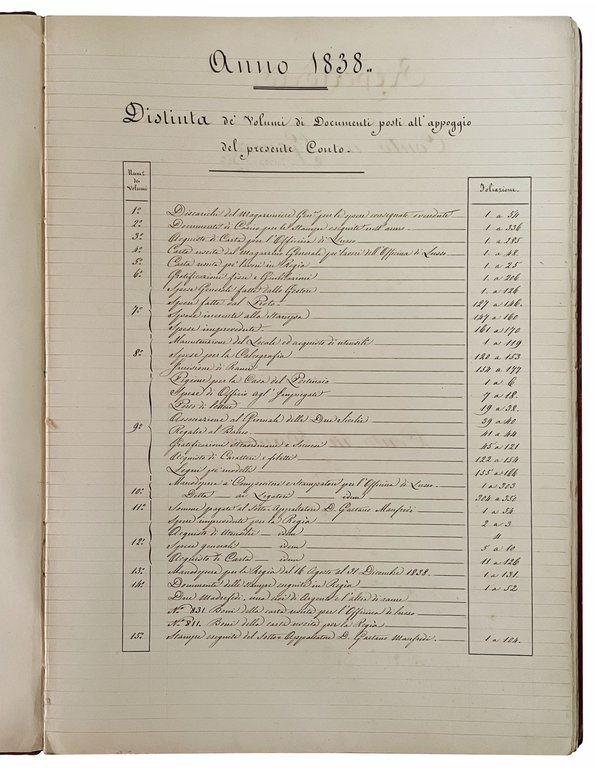 Anno 1838.
Distinta de' Volumi di Documenti posti all'appoggio
del presente Conto.
Num.º dei Volumi
Foliazione.
1º Discarichi del Magazziniere Gen. per le opere consegnate 1 a 54
2º Documenti di Carico per le Stampe eseguite nell'anno 1 a 336
3º Acquisto di Carta per l'Officina di Lusso 1 a 185
4º Carta uscita dal Magazzino Generale pe' lavori dell'Officina di Lusso 1 a 48.
5º Carta uscita pe' lavori in Regia 1 a 25
6º Gratificazioni fisse a 1 a 206
Spese Generali fatte dallo Gestore 1 a 126
Spese fatte dal Proto 127 a 146.
7º Spese inerenti alla Stampa 147 a 160
Spese imprevedute 161 a 170
Manutenzione del Locale ed acquisto di utensili 1 a 119
8º Spese per la Calcografia 120 a 153
Incisione di Rami 154 a 177
Pigione per la Casa del Portinaio 1 a 6
Spese di Officio agl'Impiegati 7 a 18.
Porto di lettere 19 a 38.
Associazione al Giornale delle Due Sicilie 39 a 40
9º Regalie al Banco 41 a 44
Gratificazioni Straordinarie e Soccorsi 45 a 121
Acquisto di Caratteri e filetti 122 a 154
Legni pe' modelli 155 a 166
Manodopera a' Compositori e Stampatori per l'Officina di Lusso 1 a 303
10º Detta ai Legatori idem 304 a 350
11º Somme pagate al Sotto-Appaltatore D. Gaetano Manfredi 1 a 54
Spese imprevedute per la Regia 2 a 3
Acquisto di Utensili idem 4
12º Spese generali idem 5 a 10
Acquisto di Carta idem 11 a 126
13º Manodopera per la Regia dal 16 Agosto al 31 Dicembre 1838. 1 a 131.
14º Documenti delle Stampe eseguite in Regia 1 a 52
Due Madrefedi, una cioè di Argento e l'altra di rame
Nº 831. Boni della carta uscita per l'Officina di lusso
Nº 811. Boni della carta uscita per la Regia
15º Stampe eseguite dal Sotto-Appaltatore D. Gaetano Manfredi. 1 a 104.